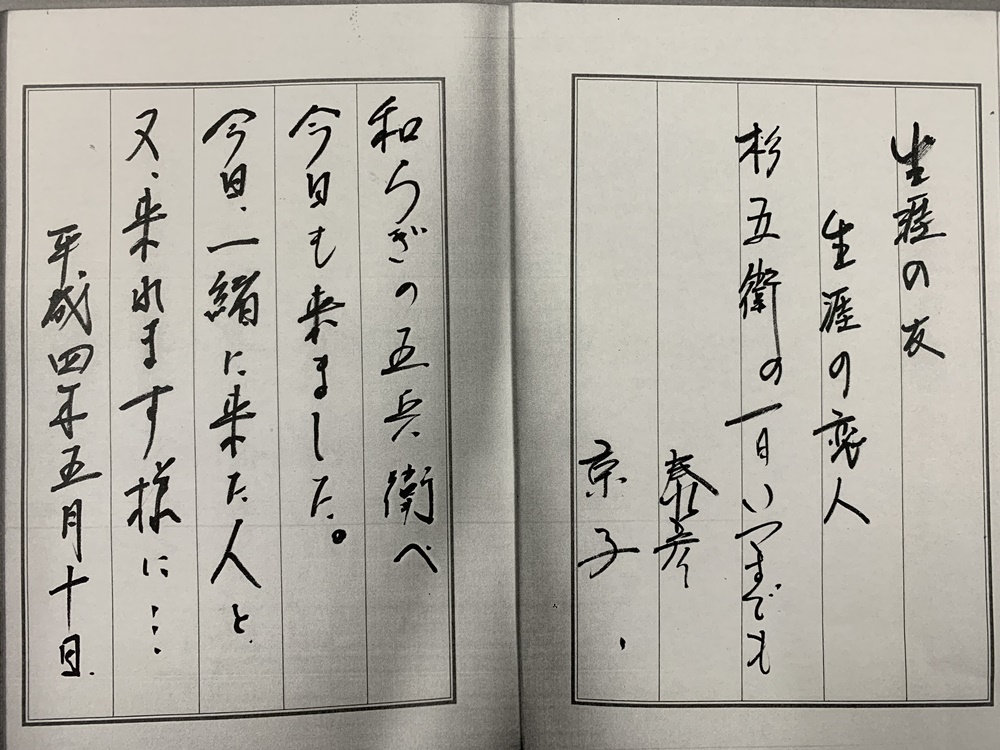 生涯の友
生涯の恋人
杉五衛の一日いつまでも
泰彦
京子
和らぎの五兵衛へ
今日も来ました。
今日、一緒に来た人と、
又、来れます様に…
平成四年五月十日.